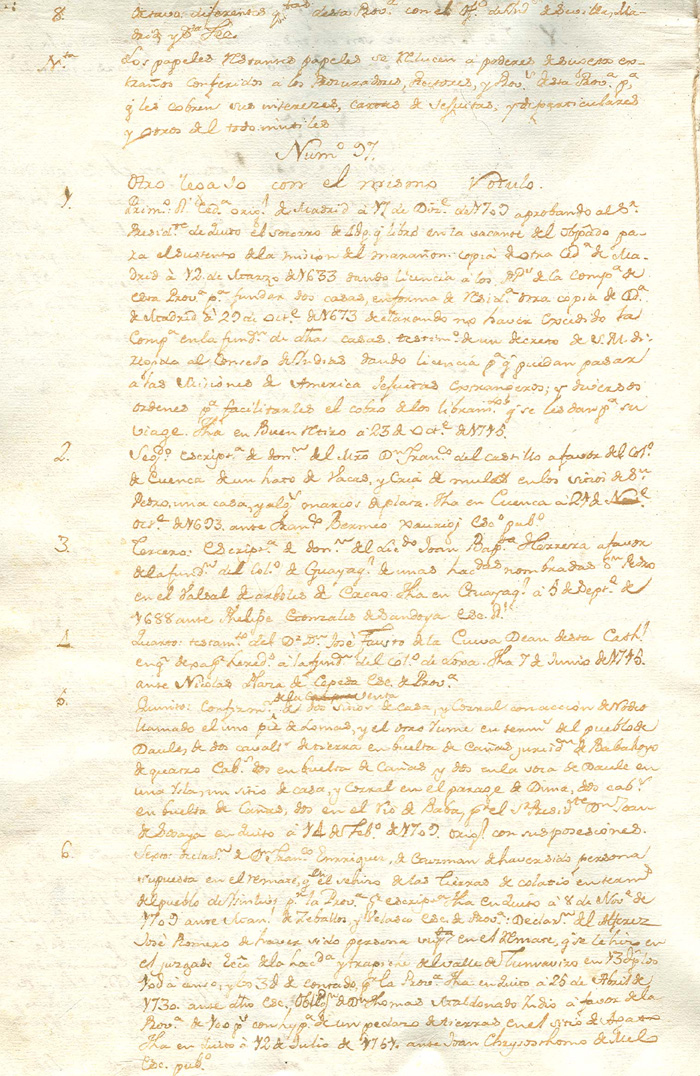 8. Octava: diferentes qtas desta Prova con el Ofo de Inds de Sevilla, Ma-
drid, y Sta Fee.
Nta Los papeles restantes papeles se reducen a poderes de sugetos ex-
traños conferidos a los Procuradores, Rectores, y Provs desta Prova pa
q les cobren sus intereses, cartas de Jesuitas, y de particulares
y otros del todo inutiles
Numo 97.
Otro legajo con el mismo Rotulo.
1. Primo RlCeda origl de Madrid à 17 de Dize de 1709 aprobando al Sr
Presidte de Quito el socorro de q libró en la vacante del Obpado pa-
ra el sustento de la mision del marañon: copia de otra Cda de Ma-
drid à 12 de Marzo de 1633 dando licencia à los PPs de la Compa de
esta Prova pa fundar dos casas, en forma de Residas otra copia de Cda
de Madrid à 29 de Octe de 1673 declarando no haver excedido la
Compa en la fundn de dhas casas. testimo de un decreto de S. M. di-
rigida al Consejo de Indias dando licencia pa q puedan pasar
a las Misiones de America Jesuitas Extrangeros; y diversos
ordenes pa facilitarles el cobro de los libramtos q se les dan pa su
viage. Fha en Buen Retiro à 23 de Octe de 1745.
2. Segdo escripta de donn del Mro Dn Franco del Castillo a favor del Colo
de Cuenca de un hato de Vacas, y Cria de mulas en los sitios de Sn
Pedro, una casa, y algs marcos de plata. Fha en Cuenca à 27 de
Octe de 1693. ante Franco Bermeo Esco pubo
3. Tercero: Escripta de donn del licdo Joan Bapta Herrera a favor
de la fundn del Colo de Guayaql de unas hacdas nombradas Sn Pedro
en el Palsal de arboles de Cacao. Fha en Guayaql à 5 de Septe de
1688 ante Phelipe Gonzales de Sandoya Esc. Rl
4. Quarto: testamto del Dr Dn José Fausto de la Cueva Dean desta Cathl
en q depa heredo à la fundn del Colo de Loxa. Fha 7 de Junio de 1745.
ante Nicolas Maza de Cepeda Esc. de Prova
5. Quinto: Confirmn de la venta de dos sitios de casa, y Corral con accion de Rodeo
llamado el uno pie de Lomas, y el otro Yume en terms del pueblo de
Daule, de dos cavalls de tierra en buelta de Cañas jurisdn de Babahoyo
de quatro Cabs dos en buelta de Cañas, y dos en la voca de Daule en
una Isla, un sitio de casa, y Corral en el parage de Dime, dos cabs
en buelta de Cañas, dos en el Rio de Baba, pr el Sr Presidte Dn Joan
de Sosaya en Quito à 14 de Febo de 1709. origl con sus posesiones.
6. Sexto: declan de Dn Franco Enrriquez, de Guzman de haver sido persona
supuesta en el remate, q se le hizo de las tieras de colatio en terms
del pueblo de pr la Prova pr escripta Fha en Quito à 8 de Nove de
1709 ante Manl de Zeballos, y Velasco Esc. de Prova: Declarn del Alferez
José Romero de haver sido persona supta en el Remate, q se le hizo en
el juzgado Ecco de la hacda y trapiche del valle de Tumbaviro en 13 ps los
10 à censo, y los 3 de contado, pr la Prova. Fha en Quito à 26 de Abril de
1730. ante dho Esc. Obligan de Dn Thomas Maldonado Indio à favor de la
Prova de 100 ps con hypa de un pedazo de tierras, en el sitio de
Fha en Quito à 12 de Julio de 1761. ante Joan Chrysosthomo de Leon
Esc. pubo